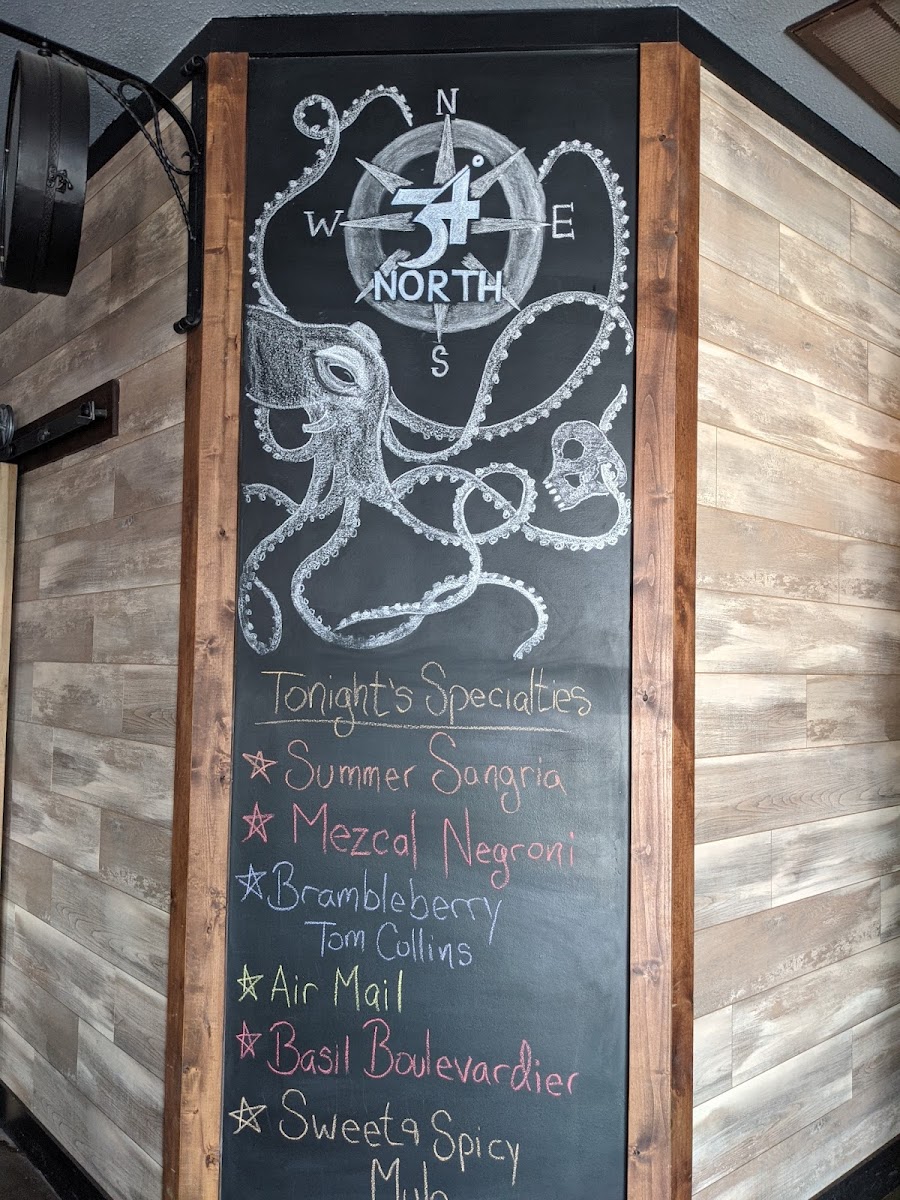 N
34°
W E
NORTH
S
Tonight's Specialties
Summer Sangria
Mezcal Negroni
Brambleberry
Tom Collins
Air Mail
Basil Boulevardier
Sweet & Spicy
Mule